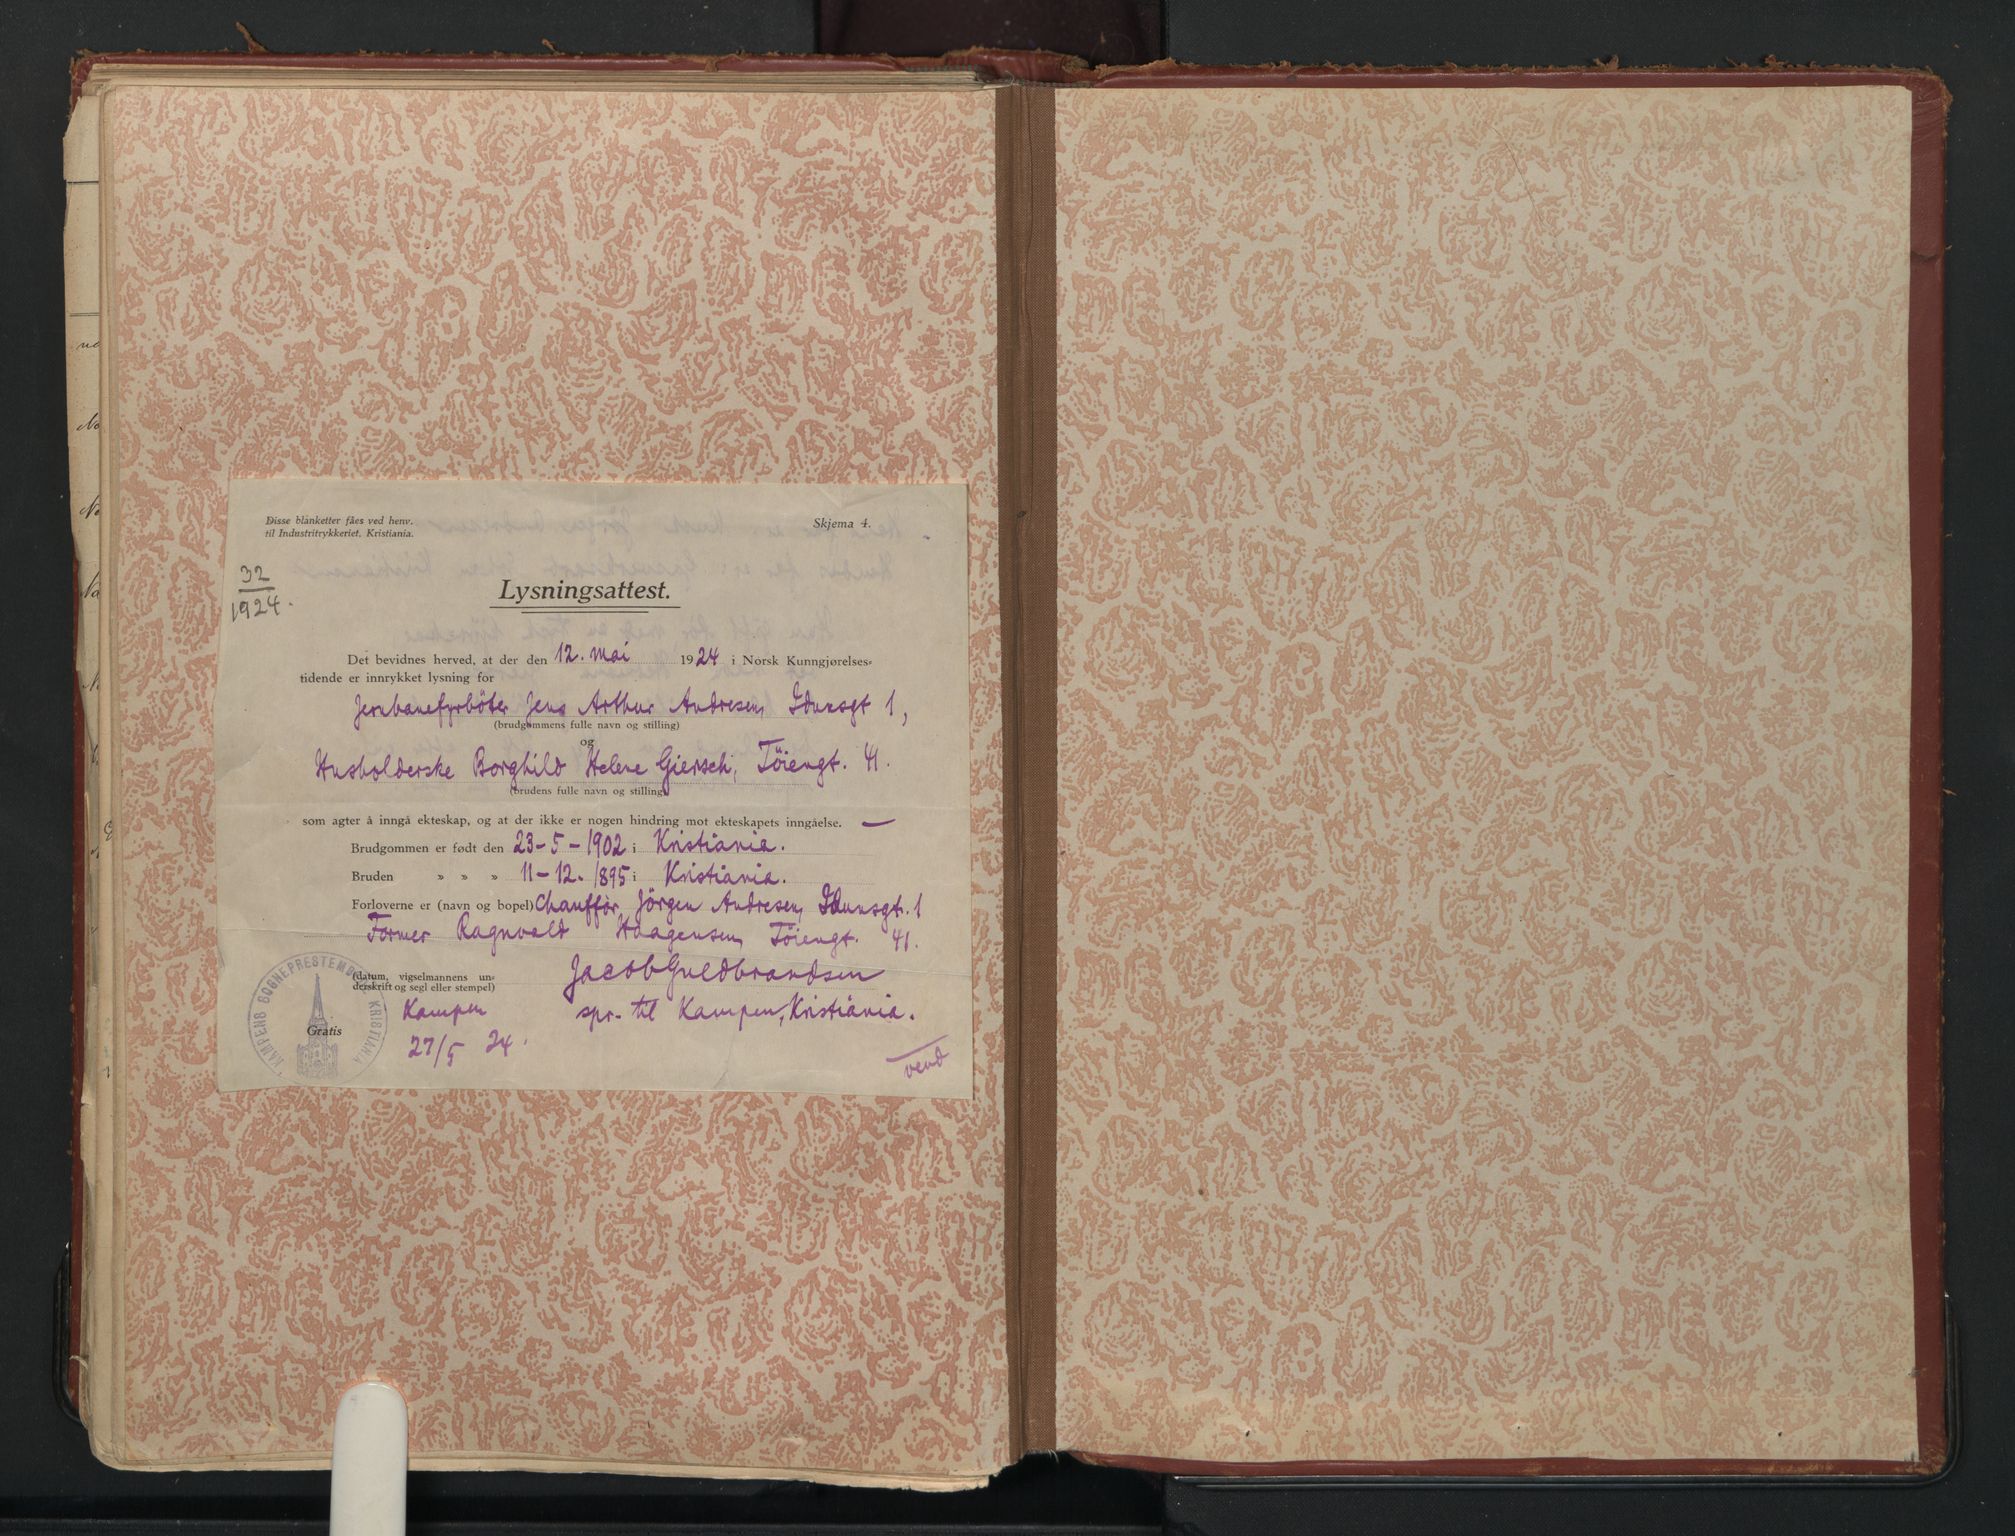 Disse blanketter fåes ved henv.
til Industritrykkeriet, Kristiania.
Skjema 4.
32
1924.
Lysningsattest.
Det bevidnes herved, at der den 12. mai 1924 i Norsk Kunngjørelses=
tidende er innrykket lysning for
Jernbanefyrböter Jens Arthur Andresen, Idunsgt 1,
(brudgommens fulle navn og stilling)
og
Husholderske Borghild Helene Giersch, Töiengt. 41.
(brudens fulle navn og stilling)
som agter å inngå ekteskap, og at der ikke er nogen hindring mot ekteskapets inngåelse. —
Brudgommen er født den 23-5-1902 i Kristiania.
Bruden » » » 11-12. 1895 i Kristiania.
Forloverne er (navn og bopel) Chauffør Jörgen Andresen, Idunsgt. 1
Former Ragnvald Haagensen, Töiengt. 41.
(datum, vigselmannens un=
derskrift og segl eller stempel)
Jacob Guldbrandsen
Kampen
spr. til Kampen, Kristiania.
Gratis
27/5 24.
vend
KAMPENS SOGNEPRESTEMBEDE KRISTIANIA